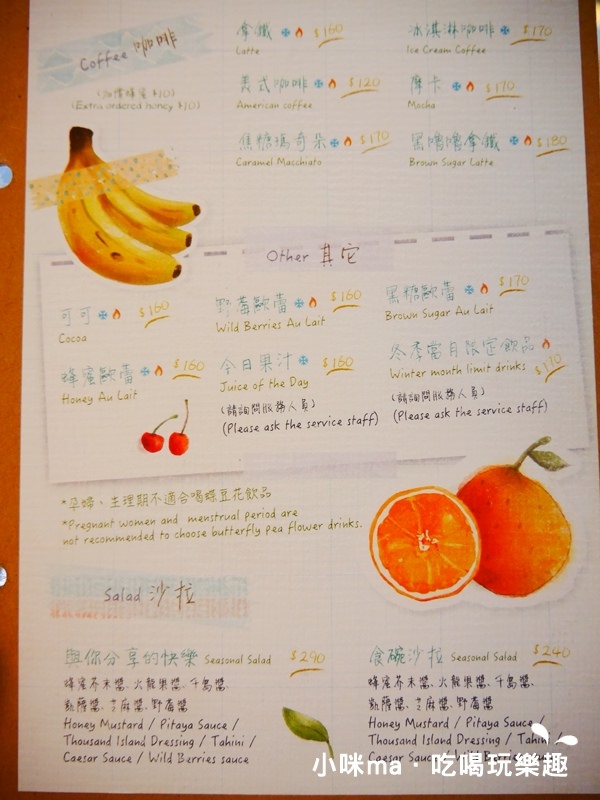 Coffee 咖啡
(加價蜂蜜 $10)
(Extra ordered honey $10)
拿鐵 $160
Latte
冰淇淋咖啡 $170
Ice Cream Coffee
美式咖啡 $120
American coffee
摩卡 $170
Mocha
焦糖瑪奇朵 $170
Caramel Macchiato
黑嚕嚕拿鐵 $180
Brown Sugar Latte
Other 其它
可可 $160
Cocoa
野莓歐蕾 $160
Wild Berries Au Lait
黑糖歐蕾 $170
Brown Sugar Au Lait
蜂蜜歐蕾 $160
Honey Au Lait
今日果汁 $160
Juice of the Day
(請詢問服務人員)
(Please ask the service staff)
冬季當月限定飲品 $170
Winter month limit drinks
(請詢問服務人員)
(Please ask the service staff)
*孕婦、生理期不適合喝蝶豆花飲品
*Pregnant women and menstrual period are
not recommended to choose butterfly pea flower drinks.
Salad 沙拉
與你分享的快樂 Seasonal Salad $290
蜂蜜芥末醬、火龍果醬、千島醬、
凱薩醬、芝麻醬、野莓醬
Honey Mustard / Pitaya Sauce /
Thousand Island Dressing / Tahini /
Caesar Sauce / Wild Berries sauce
食碗沙拉 Seasonal Salad $240
蜂蜜芥末醬、火龍果醬、千島醬、
凱薩醬、芝麻醬、野莓醬
Honey Mustard / Pitaya Sauce /
Thousand Island Dressing / Tahini /
Caesar Sauce / Wild Berries sauce
小咪ma·吃喝玩樂趣